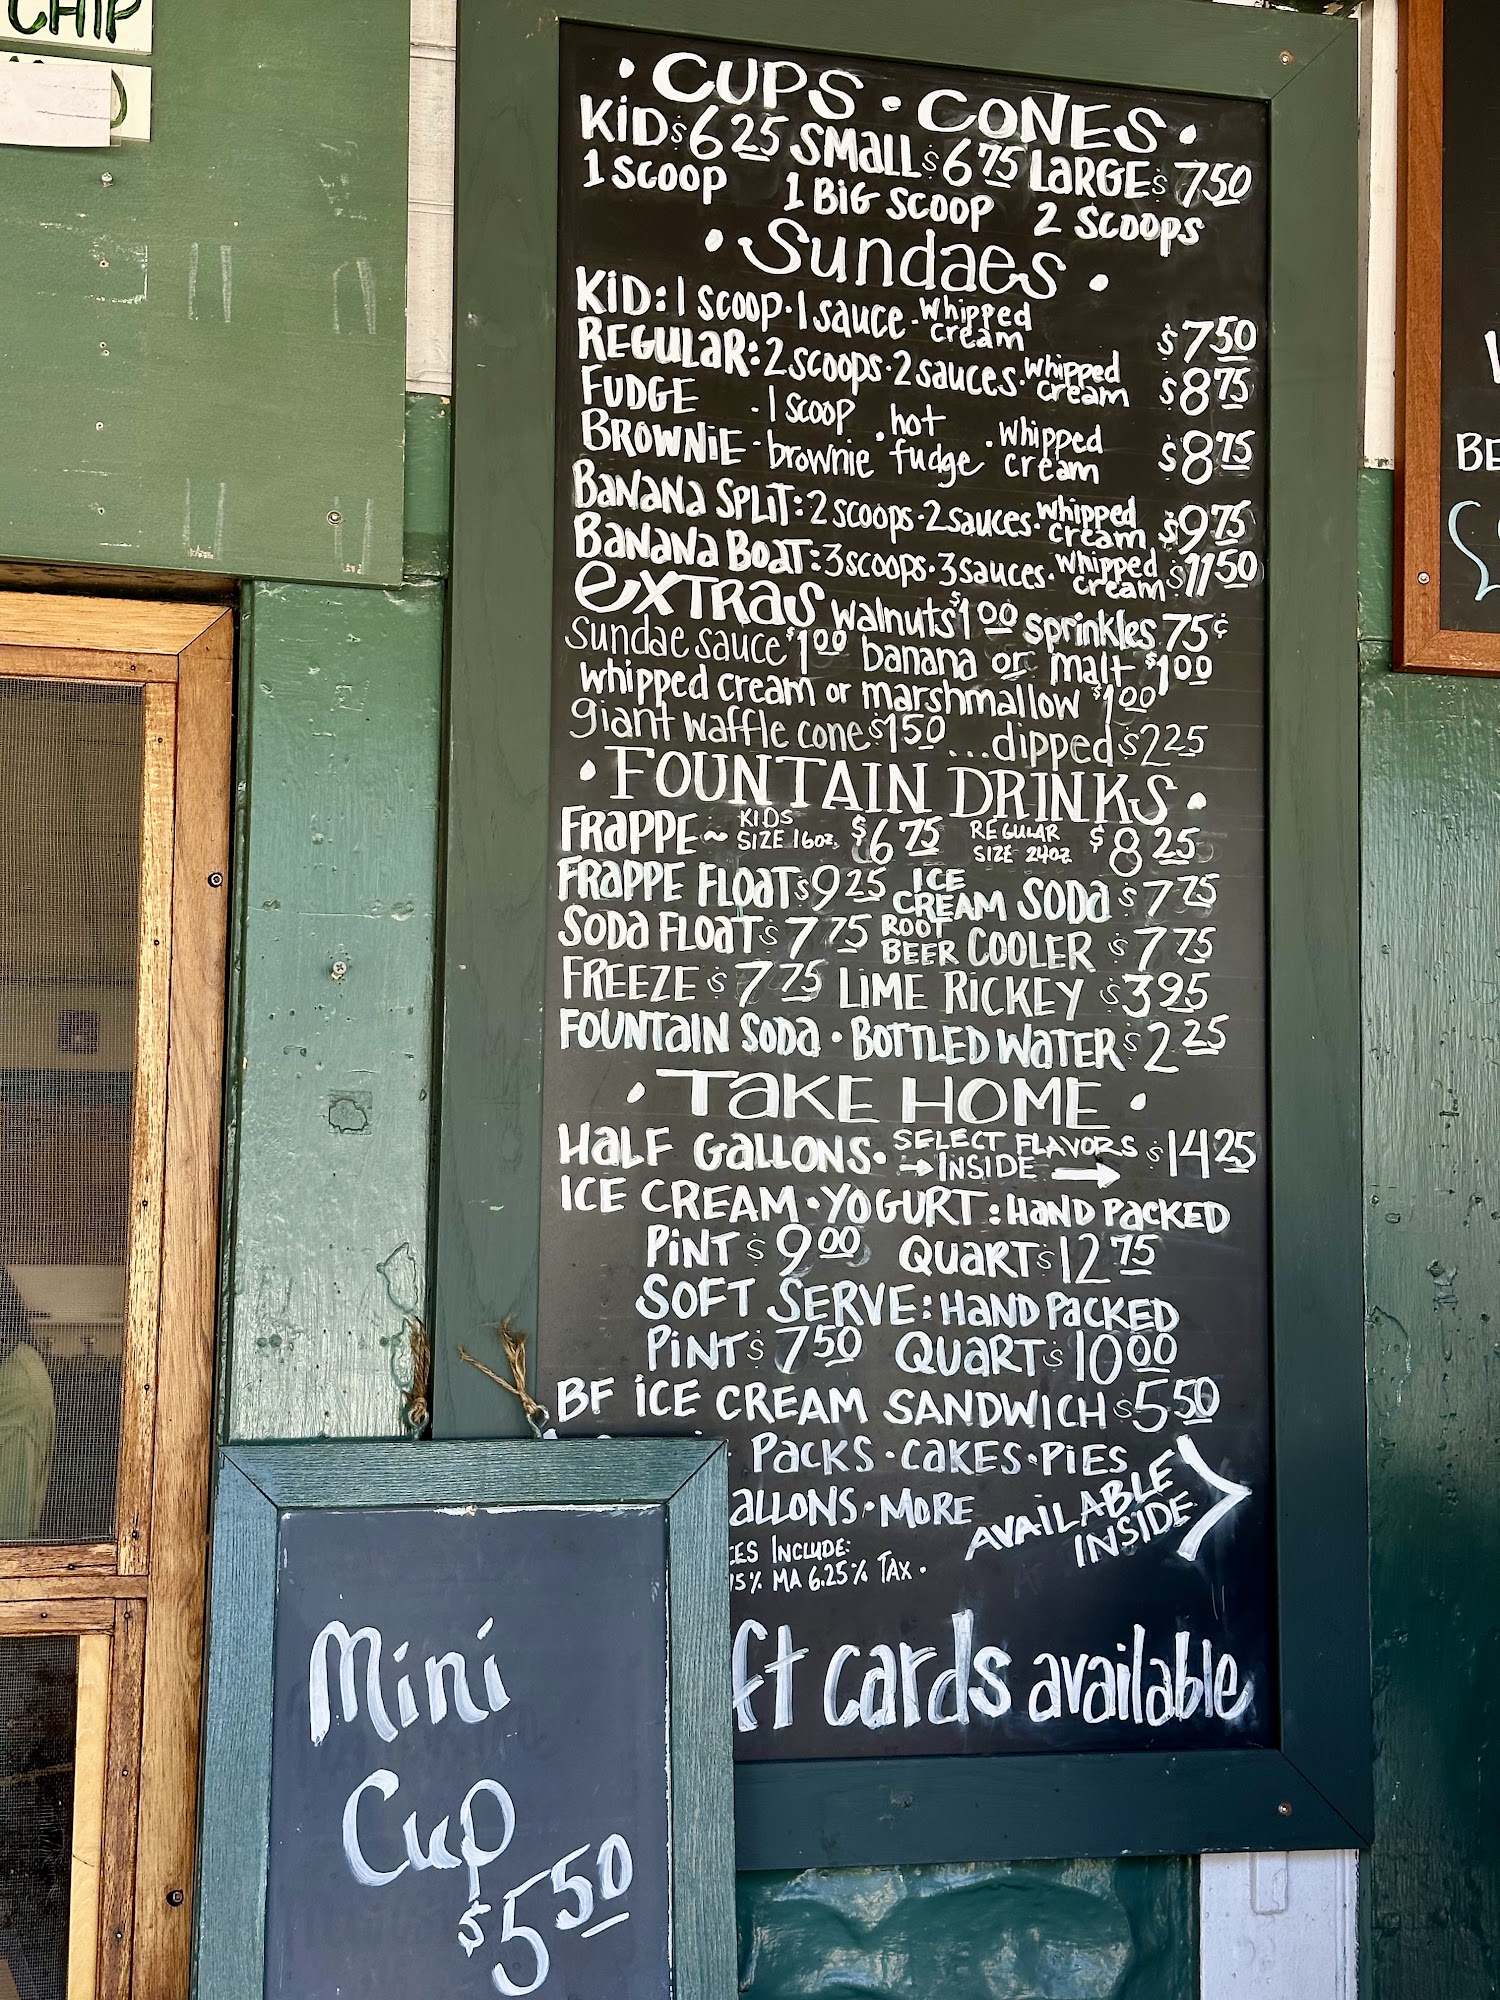 CHIP
• CUPS • CONES •
KiD $6 25 SMaLL $6 75 LARGE $ 7 50
1 SCOOP 1 BiG SCOOP 2 SCOOPS
• Sundaes •
KiD: 1 SCOOP • 1 sauce - whipped cream $7 50
REGULaR: 2 scoops • 2 sauces • whipped cream $8 75
FUDGE BROWNiE - 1 scoop brownie • hot fudge • whipped cream $8 75
BaNaNa SPLiT: 2 scoops • 2 sauces • whipped cream $9 75
BaNaNa BOaT: 3 scoops • 3 sauces • whipped cream $11 50
eXTRaS walnuts $1 00 sprinkles 75¢
sundae sauce $1 00 banana or malt $1 00
whipped cream or marshmallow $1 00
giant waffle cone $1 50 ...dipped $2 25
• FOUNTAIN DRINKS •
FRaPPE ~ KIDS SIZE 16oz. $6 75 REGULAR SIZE 24oz $8 25
FRaPPE FLOaT $9 25 ICE CREAM SODa $7 75
SODa FLOaT $7 75 ROOT BEER COOLER $7 75
FREEZE $7 75 LiME RiCKEY $3 95
FOUNTaiN SODa • BOTTLED WaTER $2 25
• TaKE HOME •
HaLF GaLLONS • SELECT FLAVORS → INSIDE → $14 25
ICE CREAM • YOGURT: HaND PaCKED
PiNT $9 00 QUaRT $12 75
SOFT SERVE: HaND PaCKED
PiNT $7 50 QUaRT $10 00
BF iCE CREAM SANDWICH $5 50
PaCKS • CaKES • PiES
aLLONS • MORE AVAILABLE INSIDE >
ES INCLUDE:
MA 6.25% TAX.
ft cards available
Mini
Cup
$5 50
BE